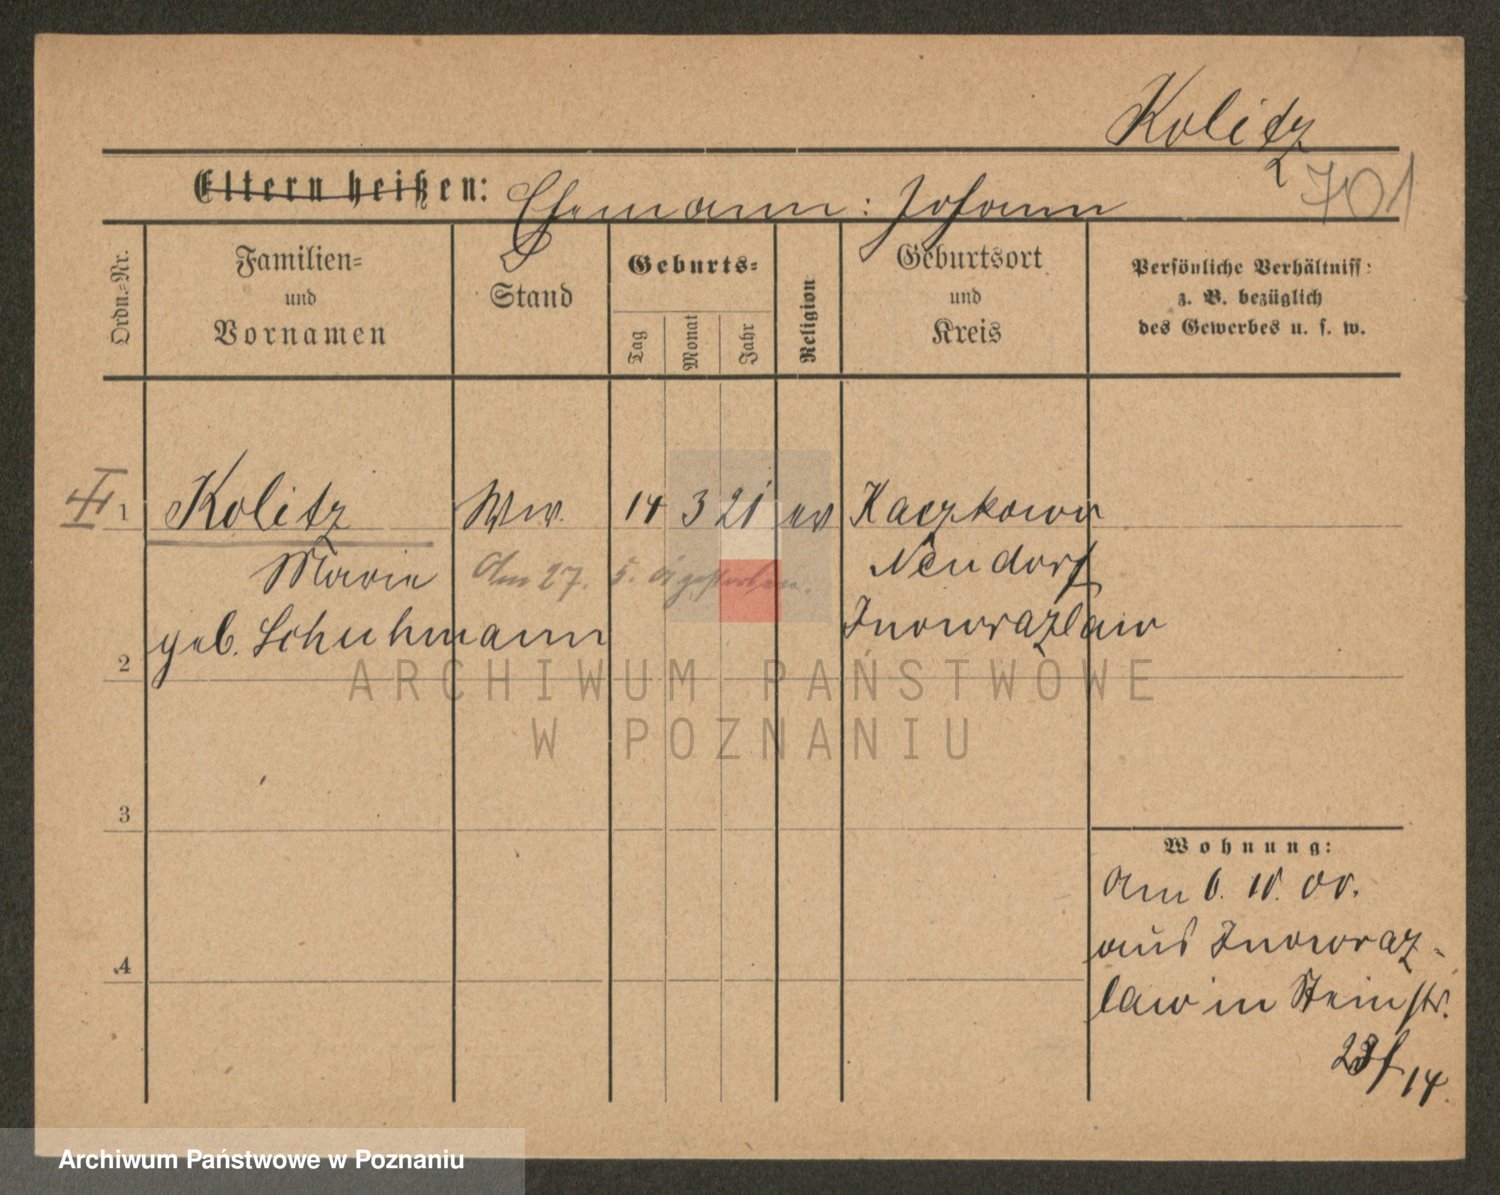 Kolitz
701
Eltern heißen: Ehemann: Johann
Ordn.-Nr.
Familien-
und
Vornamen
Stand
Geburts-
Tag
Monat
Jahr
Religion
Geburtsort
und
Kreis
Persönliche Verhältniss:
z. B. bezüglich
des Gewerbes u. s. w.
1 Kolitz Ww. 14 3 21 ev Kaczkowo
Marie Am 27. 5. gestorben. Neudorf
geb. Schuhmann Inowrazlaw
2
ARCHIWUM PAŃSTWOWE
W POZNANIU
3
Wohnung:
Am 6. 10. 00.
aus Inowraz-
4
law in Steinstr.
14
Archiwum Państwowe w Poznaniu